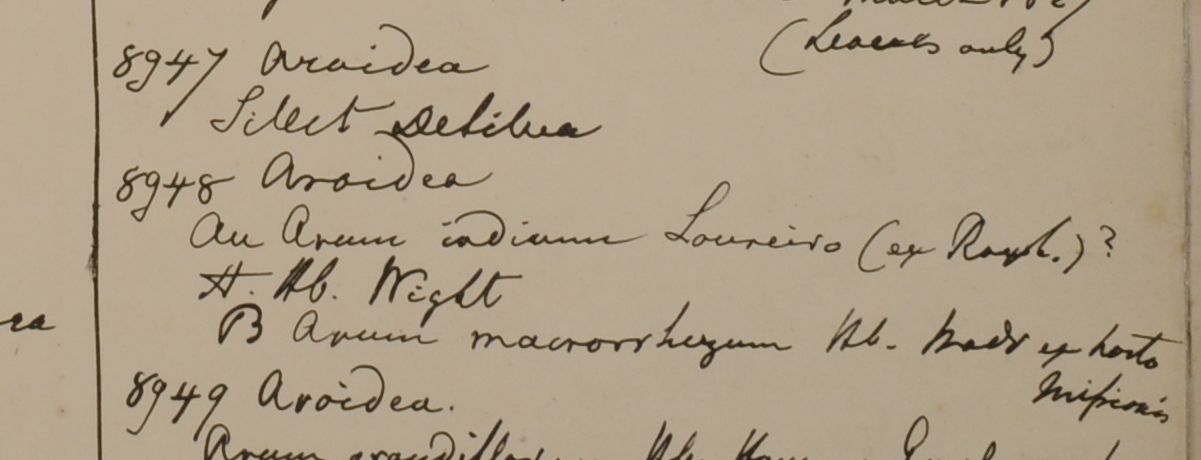 (Leaves only)
8947 Aroidea
Silhet Debilua
8948 Aroidea
An Arum indicum Loureiro (ex Roxb.)?
H. Hb. Wight
B Arum macrorrhizum Hb. Madr ex horto
Missionis
8949 Aroidea.
Arum